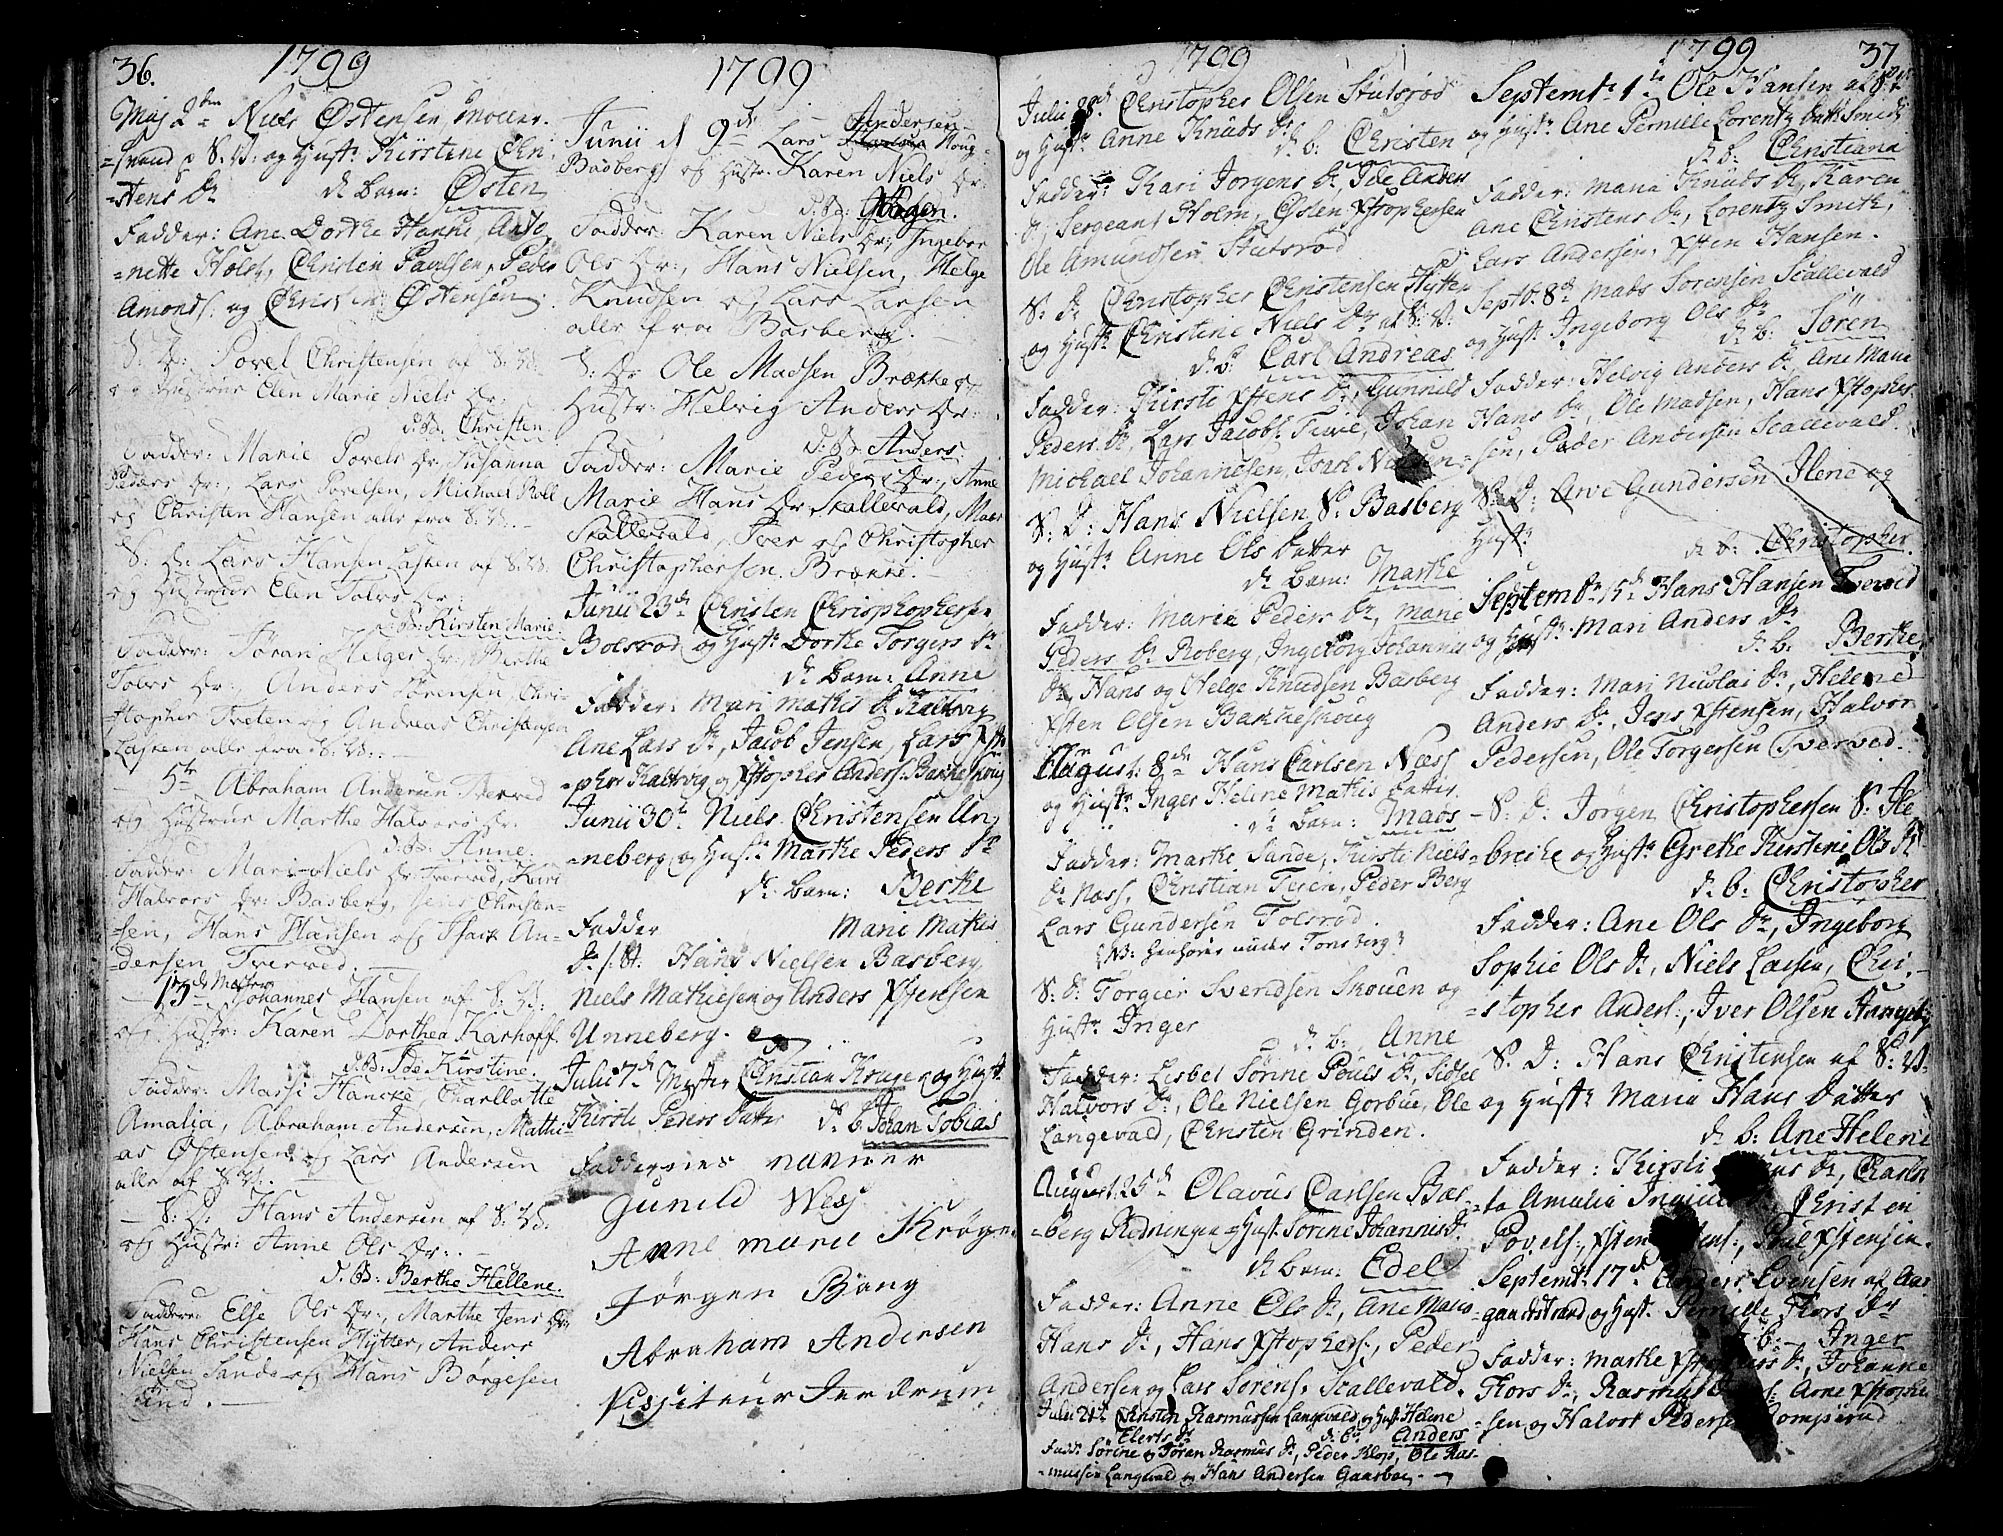 36. 1799
Maj 2den Niels Østensen,
=svend p S: V: og Hust: Kirstene Chri
=stens Dr d: barn: Østen
Fadder: Ane Dorthe Hanne, Anto
=nette Holst, Christen Paulsen, Peder
Amonds: og Christen Østensen
S: D: Povel Christensen af S: V:
og Hustrue Elen Marie Niels Dr:
d: B: Christen
Fadder: Marie Povels Dr: Susanna
Peders Dr:, Lars Povelsen, Michael Roll
og Christen Hansen alle fra S: V:
S: D: Lars Hansen Lasken af S: V:
og Hustrue Elen Tolvs Dr:
d: B: Kirsten Marie
Fadder: Jøran Helges Dr: Berthe
Tolvs Dr: Anders Sørensen Chri-
stopher Treten og Andreas Christensen
Lasken alle fra S: V:
5te Abraham Andersen Tverved
og Hustrue Marthe Halvors Dr:
d: B: Anne
Fadder: Mari Niels Dr: Tverved, Kari
Halvors Dr: Basberg, Jens Christen-
sen, Hans Hansen og Isach An-
dersen Tverved.
13de Mester Johannes Hansen af S: V:
og Hustr: Karen Dorthea Karhoff
d: B: Ide Kirstine.
Fadder: Mansi Hancke, Charllotte
Amalia, Abraham Andersen, Mathi-
as Østensen og Lars Andersen
alle af S: V:
S: D: Hans Andersen af S: V:
og Hustr: Anne Ols Dr:
d. B: Berthe Hellene.
Faddere: Else Ols Dr:, Marthe Jens Dr:
Hans Christensen Hytter, Anders
Nielsen Sande og Hans Børgesen
Lind.
1799
Junii d 9de Lars Andersen
Basberg og Hustr: Karen Niels Dr:
d: B: Jørgen.
Fadder: Karen Niels Dr: Ingebor
Ols Dr:, Hans Nielsen, Helge
Knudsen og Lars Larsen
alle fra Basberg.
S: D: Ole Madsen Brække og
Hustr: Helvig Anders Dr:
d: B: Anders
Fadder: Marie Peders Dr:, Anne
Marie Hans Dr Skallevald, Mads
Skallevald, Iver og Christopher
Christophersen Brække.
Junii 23de Christen Chrisphophersen
Bolsrød og Hust: Dorthe Torgers Dr
d: barn: Anne
Fadder: Mari Mathis Dr Kaltvig
Ane Lars Dr, Jacob Jensen, Lars Xsto
=pher Kaltvig og Xstopher Anders: Bakkeskoug
Junii 30te Niels Christensen Un
=neberg, og Hust: Marthe Peders Dr
d: barn: Berthe
Fadder Marie Mathis
Dr Hans Nielsen Basberg
Niels Mathiesen og Anders Xstensen
Unneberg.
Julii 7de Mester Christian Krüger og Hust
Kirsti Peders Datter d: b: Johan Tobias
Faddernes navner
Gunild Wess
Anne marie Krøger
Jørgen Bang
Abraham Andersen
Visiteur Jerdrum
1799
Julii 28de Christopher Olsen Stutsrød
og Hust: Anne Knuds Dr
d: b: Christen
Fadder: Kari Jørgens Dr, Ide Anders
Dr, Sergeant Holm, Østen Xstophersen
Ole Amundsen Stutsrød
S: D: Christopher Christensen Hytten
og Hust: Christine Niels Dr af S: V:
d: b: Carl Andreas
Fadder: Kirsti Xstens Dr, Gunnild
Peders Dr, Lars Jacobs: Tuve, Johan
Michael Johannesen, Isach Nielsen
S: D: Hans Nielsen S: Basberg
og Hust: Anne Ols Datter
d: barn: Marthe
Fadder: Marie Peders Dr, Marie
Peders Dr Roberg, Ingeborg Johannis
Dr, Hans og Helge Knudsen Basberg
Xsten Olsen Bakkeskoug
August: 8de Hans Carlsen Næss
og Hust: Inger Helene Mathis Datter
d: barn: Mads
Fadder: Marthe Sande, Kirsti Niels
Dr Næss, Christian Teien, Peder Berg
Lars Gundersen Tolsrød.
NB: henhører under Tonsberg
S: D: Torgier Svendsen Skouen og
Hust: Inger
d: b: Anne
Fadder: Lisbet Sørine Pouls Dr, Sidsel
Halvors Dr, Ole Nielsen Gorbue, Ole
Langevald, Christen Grinden.
August: 25de Olavus Carlsen Bas-
=berg Rødningen og Hust: Sørine Johannis Dr
d: barn: Edel
Fadder: Anne Ols Dr, Ane Maria
Hans Dr, Hans Xstophers:, Peder
Andersen og Lars Sørens: Scallevald.
Julii 21de Christen Rasmussen Langevald og Hust: Helene
Elerts Dr d: b: Anders
Fadd: Sørine og Jøran Rasmus Dr, Peder Klop, Ole Ras-
=mussen Langevald og Hans Andersen Gaasboe
1799 37
Septembr: 1te Ole Hansen af S: V:
og Hust: Ane Pernille Lorentz Datt: Smidt
d: b: Christiana
Fadder: Maria Knuds Dr, Karen
Ane Christens Dr, Lorentz Smith,
Lars Andersen, Xsten Hansen.
Septbr: 8de Mads Sørensen Scallevald
og Hust: Ingeborg Ols Dr
d: b: Søren
Fadder: Helvig Anders Dr, Ane Maria
Hans Dr, Ole Madsen, Hans Xstopher-
=sen, Peder Andersen Scallevald.
S: D: Arve Gundersen Ilene og
Hust:
d: b: Christopher
Septembr: 15de Hans Hansen Tverved
og Hust: Mari Anders Dr
d: b: Berthe
Fadder: Mari Nicolai Dr, Helene
Anders Dr, Jens Xstensen, Halvor
Pedersen, Ole Torgersen Tverved.
S: D: Jørgen Christophersen S: Ile
=breike og Hust: Grethe Kirstine Ols Dr
d: b: Christopher
Fadder: Ane Ols Dr, Ingeborg
Sophie Ols Dr, Niels Larsen, Chri-
=stopher Anders:, Iver Olsen
S: D: Hans Christensen af S: V:
og Hust: Maria Hans Datter
d: b: Ane Helene
Fadder: Kirsti Dr, Charlo
ta Amalia Christen
Povels:, Xsten Poul Xstensen.
Septembr: 17de Anders Evensen af Aas
gaardstrand og Hust: Pernille Thors Dr
d: b: Inger
Fadder: Marthe Dr, Johanne
Thors Dr, Rasmus Arne Xstopher
sen og Halvor Pedersen Romperud